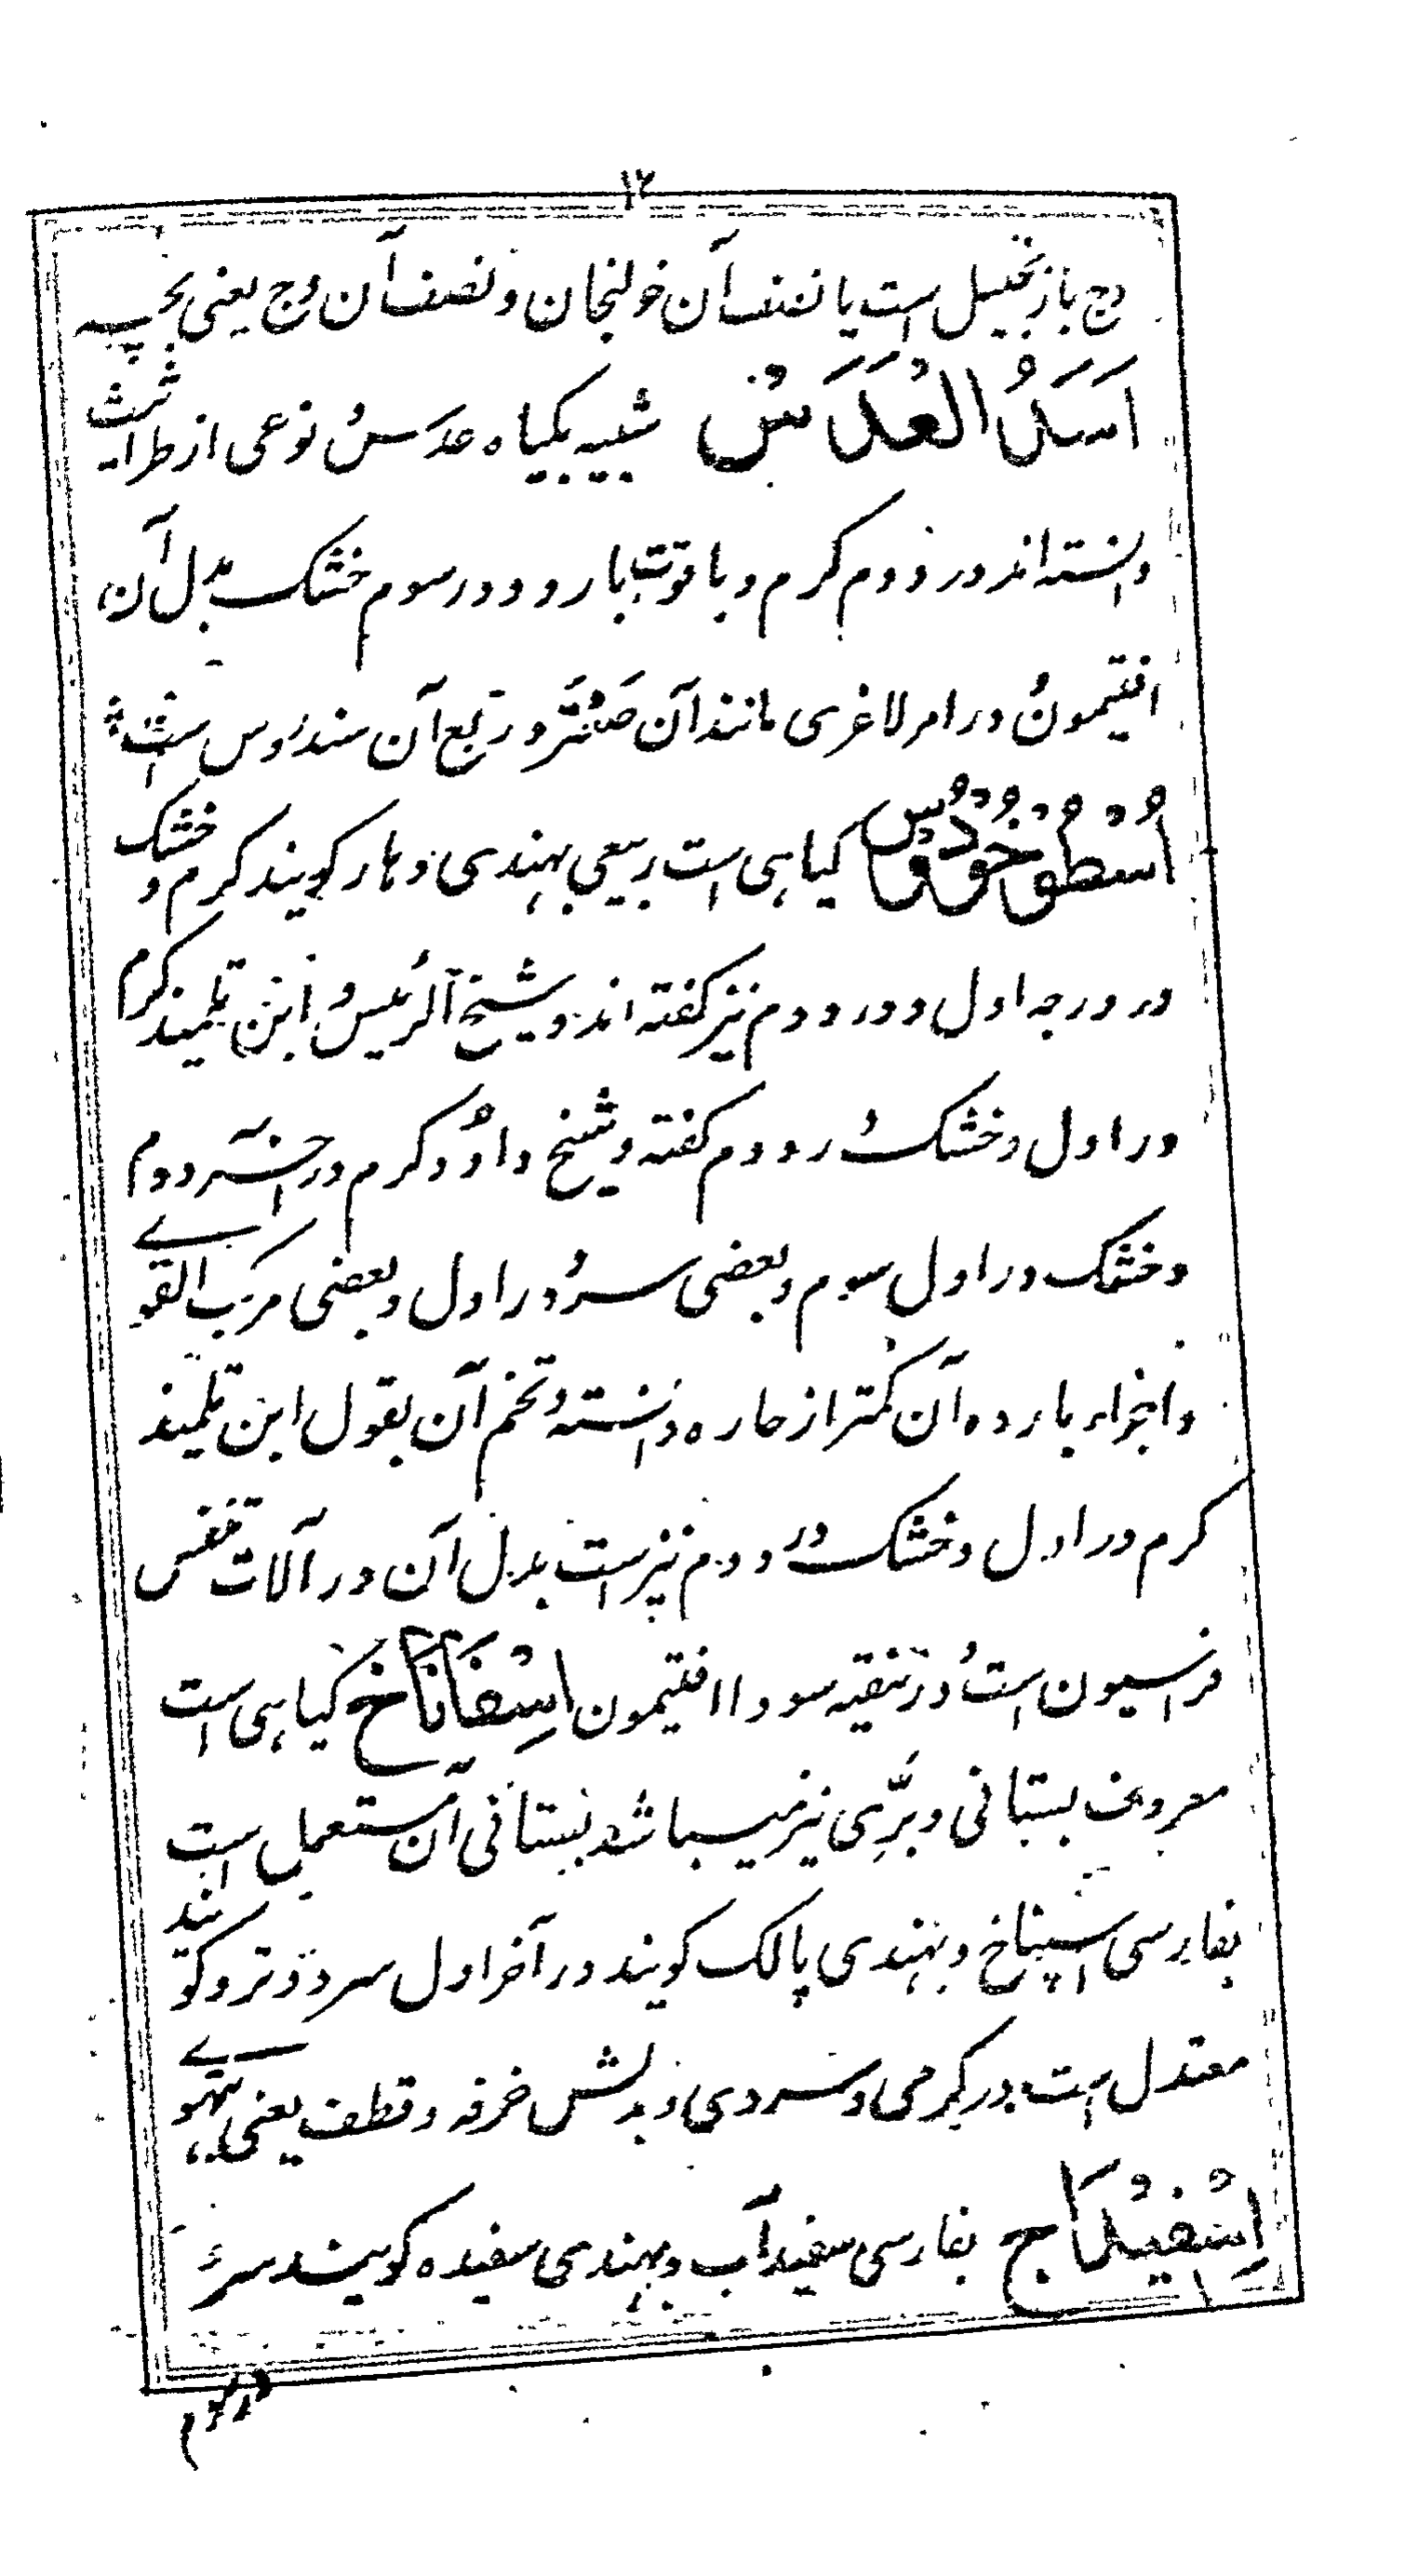 ۱۲
وج با زنجبیل است یا نصف آن خولنجان و نصف آن وج یعنی بچہ
اَسَدُ العَدَس شبیه بگیاه عدس و نوعی از طراثیث
دانسته اند در دوم گرم و با قوت بارد و در سوم خشک بدل آن
افتیمون و در امر لاغری مانند آن صعتر و ربع آن سندروس است
اُسْطُوخُودُوس گیاهی است ربیعی بهندی دهار گویند گرم و خشک
در درجه اول و در دوم نیز گفته اند و شیخ الرئیس و ابن تلمیذ گرم
در اول و خشک در دوم گفته و شیخ داؤد گرم در آخر دوم
و خشک در اول سوم و بعضی سرد در اول و بعضی مرکب القوے
و اجزاء بارده آن کمتر از حاره دانسته و تخم آن بقول ابن تلمیذ
گرم در اول و خشک در دوم نیز است بدل آن در آلات تنفس
فراسیون است و در تنقیه سودا افتیمون اِسْفَانَاخ گیاهی است
معروف بستانی و برّی نیز میباشد بستانی آن مستعمل است
بفارسی اسپناخ و بهندی پالک گویند در آخر اول سرد و تر و گویند
معتدل است در گرمی و سردی و بدلش خرفه و قطف یعنی بتهوے
اِسْفِیْدَاج بفارسی سفید آب و بهندی سفیده گویند سرد